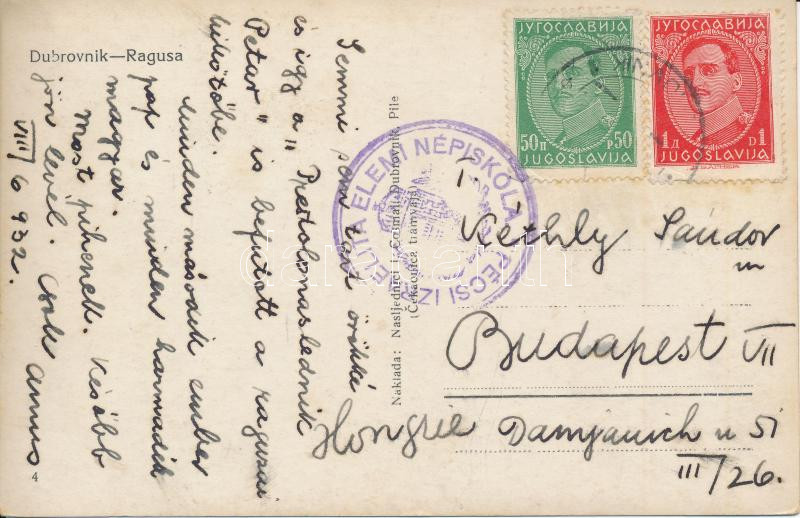 Dubrovnik—Ragusa
Semmi sem tart örökké
és így a "Prestolonaslednik
Petar" is befutott a raguzai
kikötőbe.
Minden második ember
pap és minden harmadik
magyar.
Most pihenek. Később
jön levél. Csók
VIII/6 932.
4
Naklada: Nasljednici i Čučmali, Dubrovnik, Pile
(Čekaonica tramvaja)
PÉCSI IZRAELITA ELEMI NÉPISKOLA
ЈУГОСЛАВИЈА
50п р50
JUGOSLAVIJA
ЈУГОСЛАВИЈА
1д D1
JUGOSLAVIJA
Kéthly Sándor
Budapest VII
Hongrie
Damjanich u 51
III/26.
darabanth